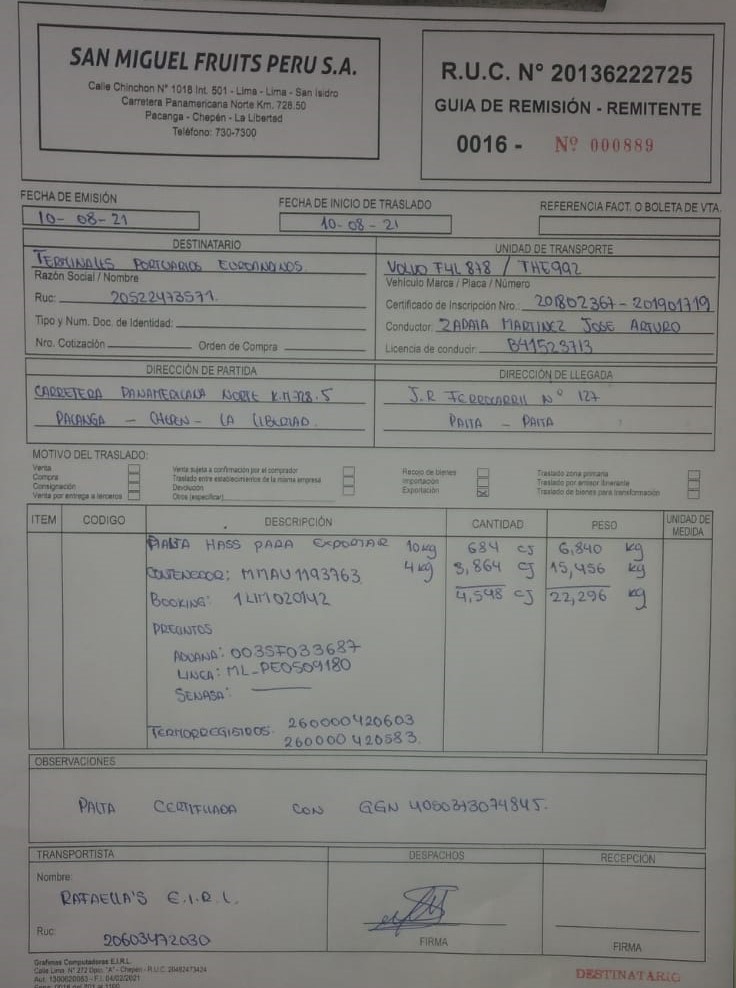 SAN MIGUEL FRUITS PERU S.A.
Calle Chinchon N° 1018 Int. 501 - Lima - Lima - San Isidro
Carretera Panamericana Norte Km. 728.50
Pacanga - Chepén - La Libertad
Teléfono: 730-7300
R.U.C. N° 20136222725
GUIA DE REMISIÓN - REMITENTE
0016 - Nº 000889
FECHA DE EMISIÓN
10-08-21
FECHA DE INICIO DE TRASLADO
10-08-21
REFERENCIA FACT. O BOLETA DE VTA.
DESTINATARIO
TERMINALES PORTUARIOS EUROANDINOS
Razón Social / Nombre
Ruc: 20522473571.
Tipo y Num. Doc. de Identidad:
Nro. Cotización Orden de Compra
UNIDAD DE TRANSPORTE
VOLVO T4L 878 / THE992
Vehículo Marca / Placa / Número
Certificado de Inscripción Nro.: 201802367-201901719
Conductor: ZADAIA MARTINEZ JOSE ARTURO
Licencia de conducir: B41523713
DIRECCIÓN DE PARTIDA
CARRETERA PANAMERICANA NORTE K.M 728.5
PACANGA - CHEPEN - LA LIBERTAD
DIRECCIÓN DE LLEGADA
J.R FERROCARRIL N° 127
PAITA - PAITA
MOTIVO DEL TRASLADO:
Venta
Compra
Consignación
Venta por entrega a terceros
Venta sujeta a confirmación por el comprador
Traslado entre establecimientos de la misma empresa
Devolución
Otros (especificar)
Recojo de bienes
Importación
Exportación
Traslado zona primaria
Traslado por emisor itinerante
Traslado de bienes para transformación
ITEM CODIGO DESCRIPCIÓN CANTIDAD PESO UNIDAD DE MEDIDA
PALTA HASS PARA EXPORTAR 10kg 684 CJ 6,840 kg
CONTENEDOR: MMAU1193763 4kg 3,864 CJ 15,456 kg
BOOKING: 1LIM020142 4,548 CJ 22,296 kg
PRECINTOS
ADUANA: 003SF033687
LINEA: ML-PE0509180
SENASA:
TERMORREGISTROS: 260000420603
260000420583.
OBSERVACIONES
PALTA CERTIFICADA CON GGN 4050373074845.
TRANSPORTISTA
Nombre:
RAFAELLA'S E.I.R.L.
Ruc: 20603472030
DESPACHOS
FIRMA
RECEPCIÓN
FIRMA
Graficas Computadoras E.I.R.L.
Calle Lima N° 272 Dpto. "A" - Chepén - R.U.C. 20482473424
DESTINATARIO